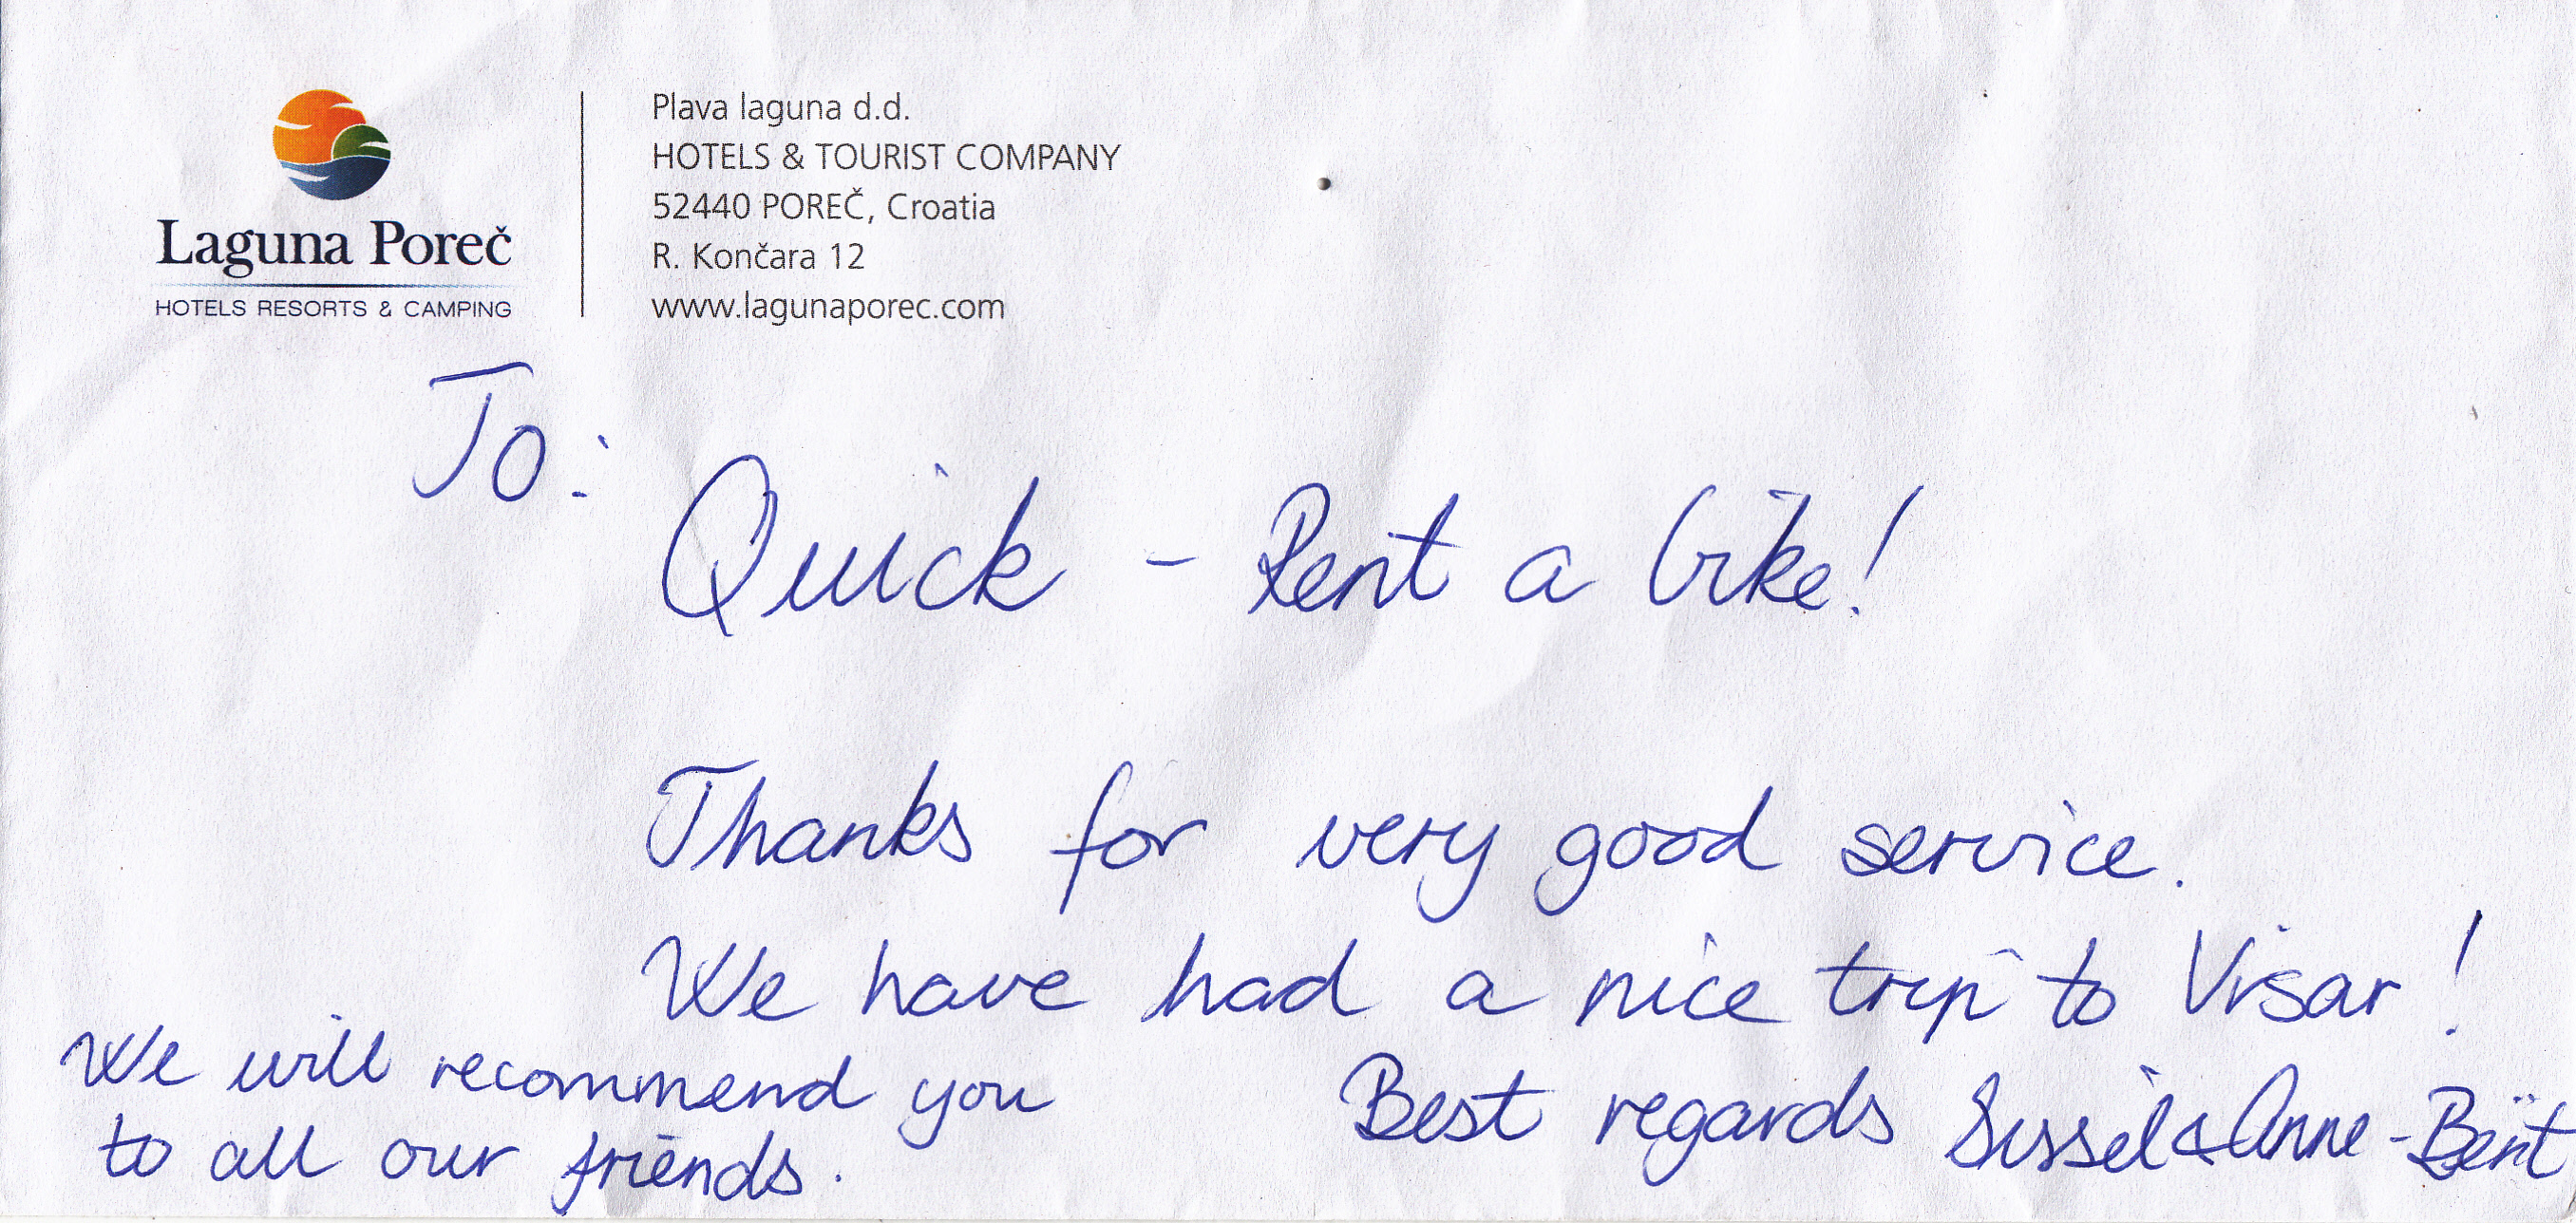 Laguna Poreč
HOTELS RESORTS & CAMPING
Plava laguna d.d.
HOTELS & TOURIST COMPANY
52440 POREČ, Croatia
R. Končara 12
www.lagunaporec.com
To:
Quick - Rent a bike!
Thanks for very good service.
We have had a nice trip to Vrsar!
We will recommend you
to all our friends.
Best regards Sissel & Anne-Berit